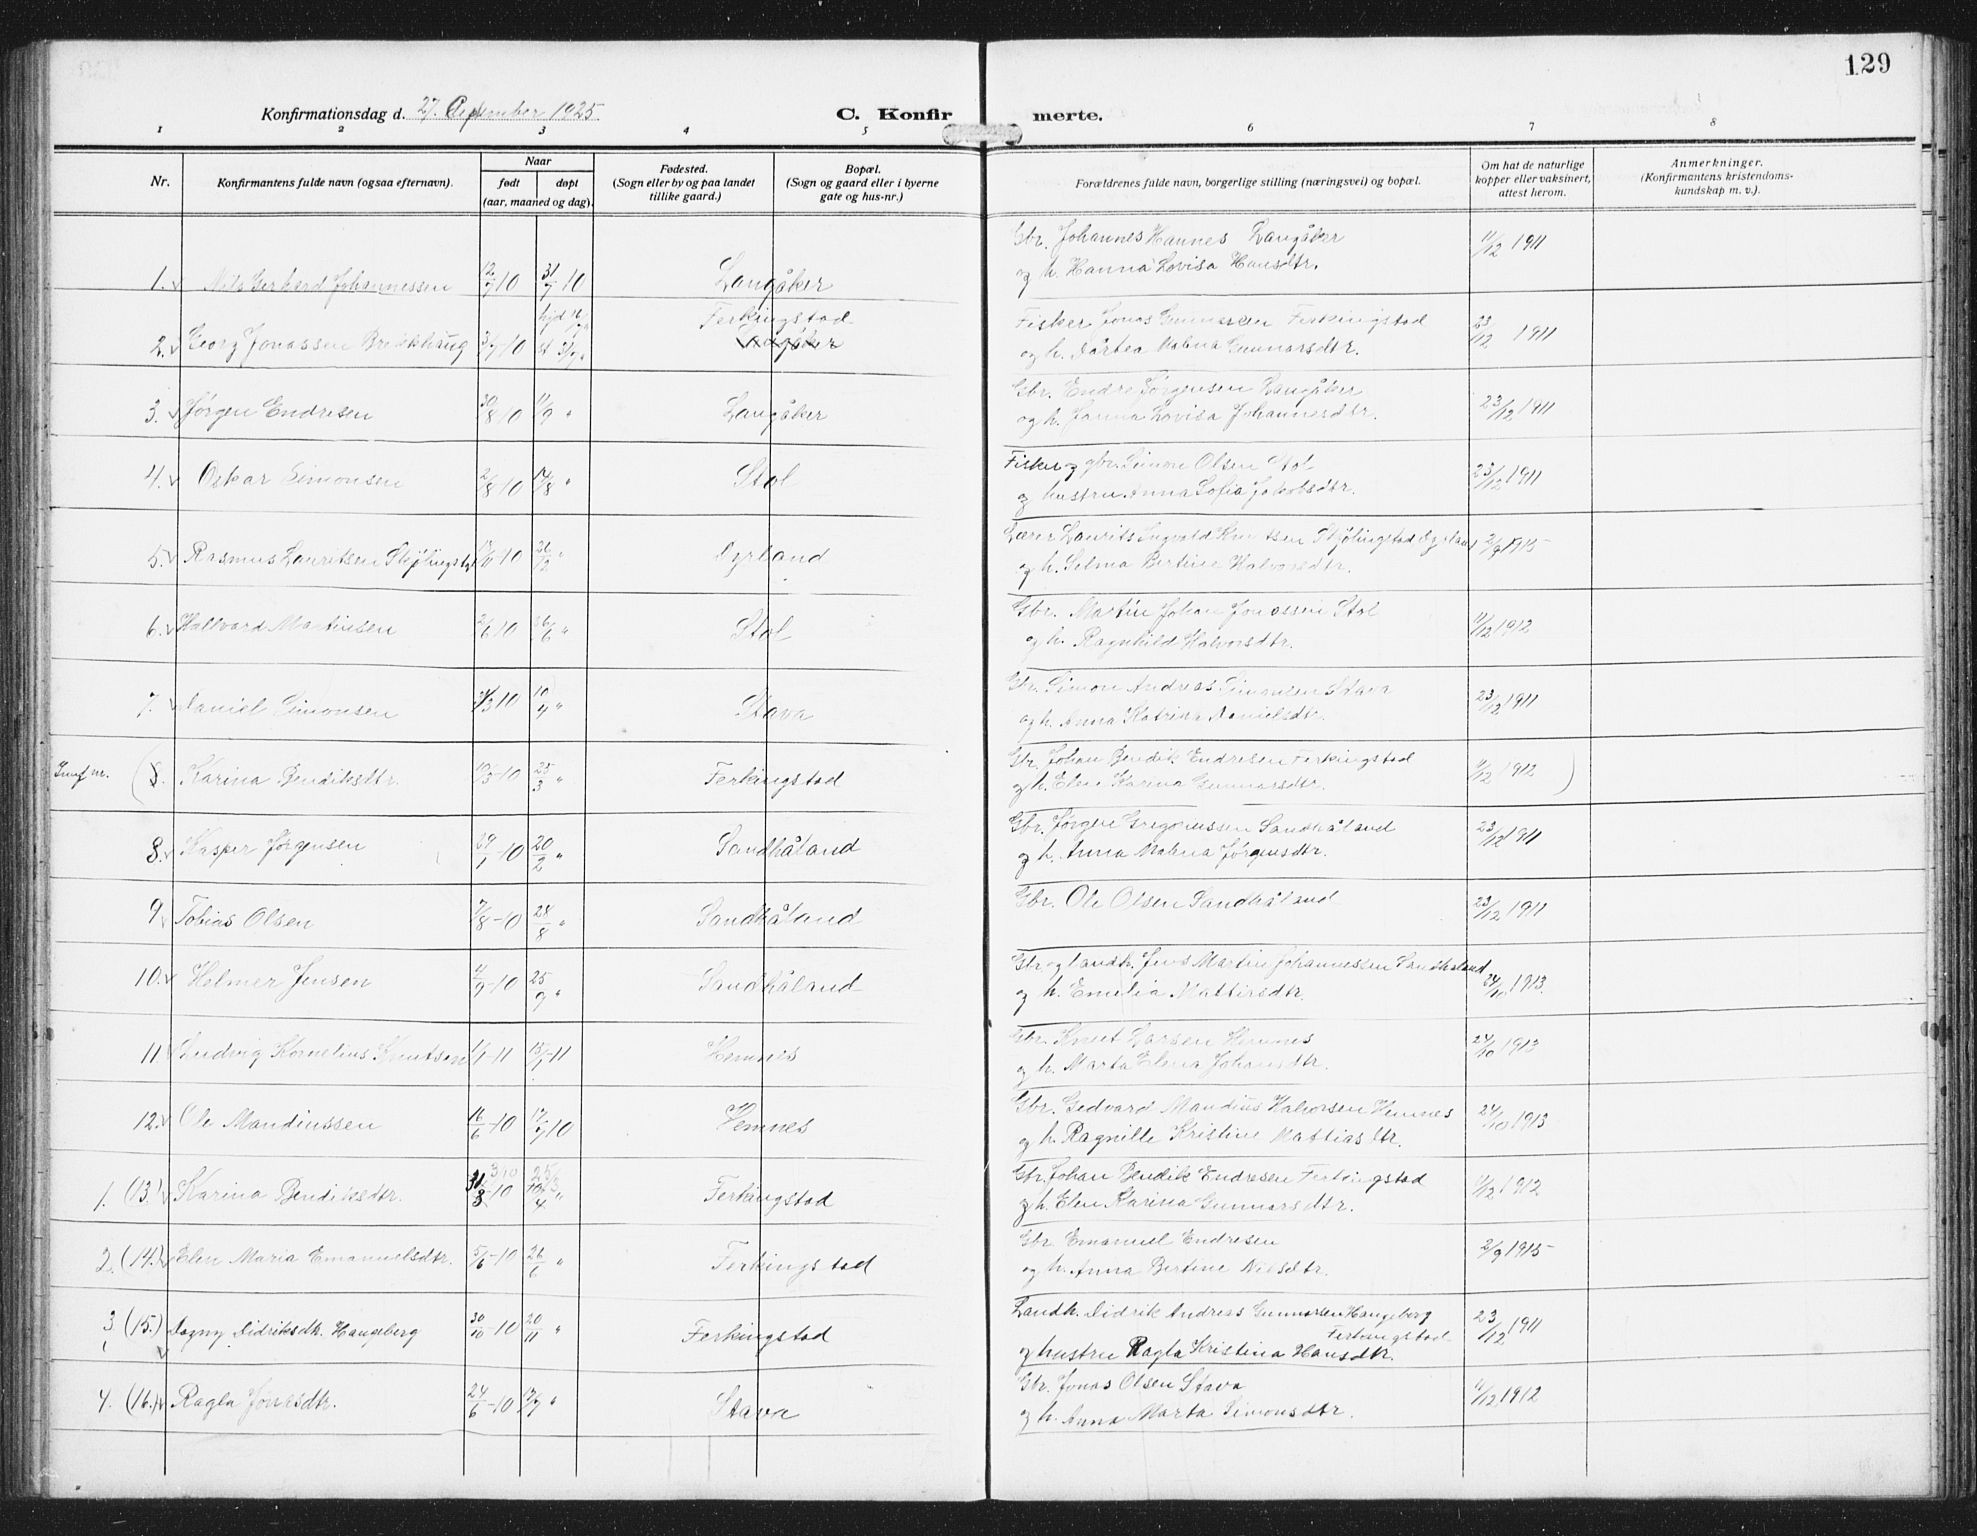 129
Konfirmationsdag d. 27. September 1925
C. Konfirmerte.
1 2 3 4 5 6 7 8
Nr.
Konfirmantens fulde navn (ogsaa efternavn).
Naar
født døpt
(aar, maaned og dag).
Fødested.
(Sogn eller by og paa landet
tillike gaard.)
Bopæl.
(Sogn og gaard eller i byerne
gate og hus-nr.)
Forældrenes fulde navn, borgerlige stilling (næringsvei) og bopæl.
Om hat de naturlige
kopper eller vaksinert,
attest herom.
Anmerkninger.
(Konfirmantens kristendoms-
kundskap m. v.).
Gbr. Johannes Hannes Langåker 11/12 1911
1. Nils Gerhard Johannessen 12/7 10 31/7 10 Langåker og h. Hanna Lovisa Hansdtr.
Ferkingstad Fisker Jonas Gunnarsen Ferkingstad 23/12 1911
2. Georg Jonassen Breidkhaug 3/7-10 Langåker og h. Dårtea Malena Gunnarsdtr.
Gbr. Endre Jørgensen Langåker
3. Jørgen Endresen 30/8 10 11/9 " Langåker og h. Janna Lovisa Johannesdtr. 23/12 1911
Fisker og gbr. Simon Olsen Stol
4. Oskar Simonsen 2/8 10 14/8 " Stol og hustru Anna Sofia Jakobsdtr. 23/12 1911
Lærer Laurits Ingvald Knutsen Skjølingstad Dyrland 2/9 1915
5. Rasmus Lauritsen Skjølingstad Dyrland og h. Selma Bertine Halvorsdtr.
Gbr. Martin Johan Jonassen Stol
6. Hallvard Martinsen 2/6 10 26/6 " Stol og h. Ragnhild Halvorsdtr. 11/12 1912
Gbr. Simon Andreas Simonsen Stava
7. Daniel Simonsen 10/4 " Stava og h. Anna Katrina Danielsdtr. 23/12 1911
Gbr. Johan Bendik Endresen Ferkingstad
(8. Karina Bendiksdtr. 25/3 " Ferkingstad og h. Elen Karina Gunnarsdtr. 11/12 1912 )
Gbr. Jørgen Gregoriussen Sandhåland
8. Kasper Jørgensen 29/1-10 20/2 " Sandhåland og h. Anna Malena Jørgensdtr. 23/12 1911
9. Tobias Olsen 7/8-10 28/8 " Sandhåland Gbr. Ole Olsen Sandhåland 23/12 1911
Gbr. og landh. Jens Martin Johannessen Sandhåland
10. Helmer Jensen 4/9-10 25/9 " Sandhåland og h. Emelia Mattisdtr. 24/10 1913.
Gbr. Knut Larsen Hemnes
11. Ludvig Kornelius Knutsen 1/1-11 15/1-11 Hemnes og h. Marta Elena Johansdtr. 24/10 1913
Gbr. Gedvard Mandius Halvorsen Hemnes
12. Ole Mandiussen 16/6-10 17/7 10 Hemnes og h. Ragnille Kristine Mattiasdtr. 24/10 1913
Gbr. Johan Bendik Endresen Ferkingstad
1. (13.) Karina Bendiksdtr. Ferkingstad og h. Elen Karina Gunnarsdtr. 11/12 1912
Gbr. Emanuel Endresen
2. (14.) Elen Maria Emanuelsdtr. 5/6-10 26/6 " Ferkingstad og h. Anna Bertine Nilsdtr. 2/9 1915
Landh. Didrik Andreas Gunnarsen Haugeberg
Ferkingstad
3. (15.) Dagny Didriksdtr. Haugeberg 30/10-10 20/11 " Ferkingstad og hustru Ragla Kristina Hansdtr. 23/12 1911
Gbr. Jonas Olsen Stava
4. (16.) Ragla Jonasdtr. 24/6-10 17/7 " Stava og h. Anna Marta Simonsdtr. 11/12 1912